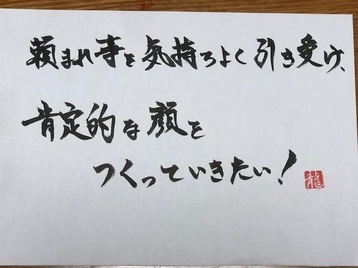 頼まれ事を気持ちよく引き受け、
肯定的な顔を
つくっていきたい!
龍